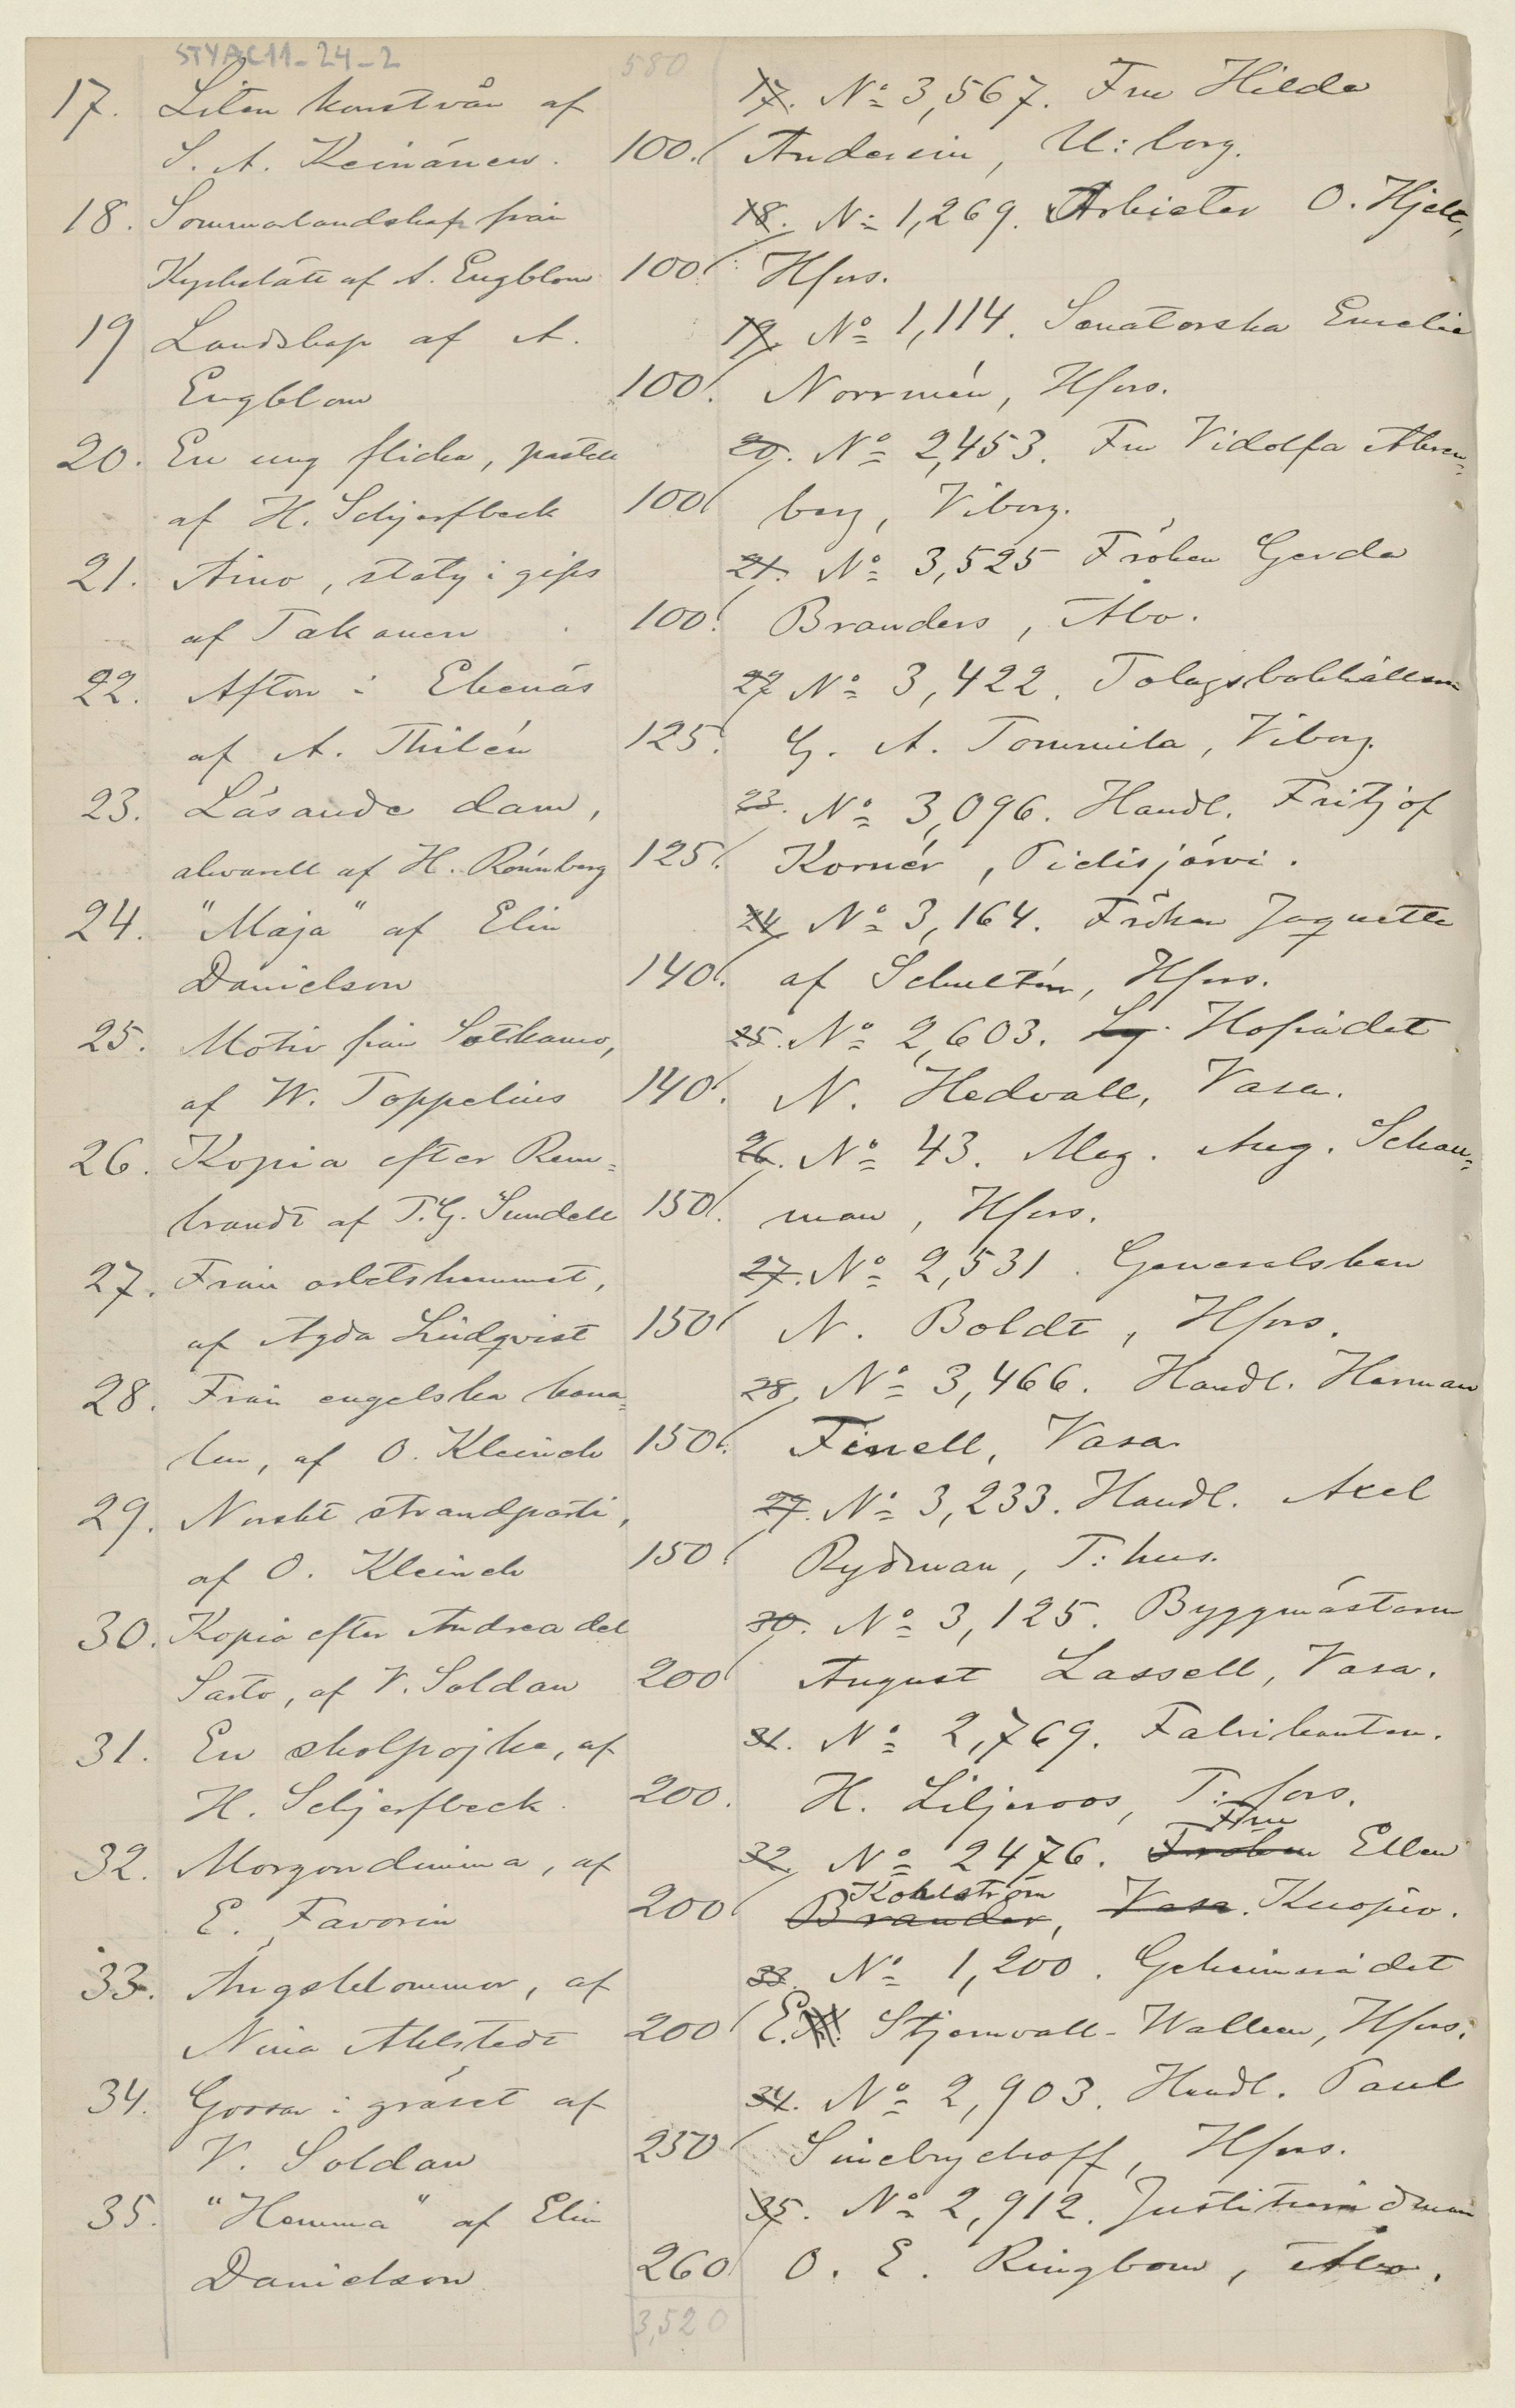 STYAC11-24-2
580
17. Liten konstvän af 17. No 3,567. Fru Hilda
S. A. Keinänen. 100. Andersin, U:borg.
18. Sommarlandskap från 18. No 1,269. Arbieter O. Hjelt,
af A. Engblom 100. Hfors.
19 Landskap af A. 19. No 1,114. Senatorska Emelie
Engblom 100. Norrmén, Hfors.
20. En ung flicka, pastell 20. No 2,453. Fru Vidolfa Ahren=
af H. Schjerfbeck 100 berg, Viborg.
21. Aino, staty i gips 21. No 3,525 Fröken Gerda
af Takanen 100. Branders, Åbo.
22. Afton i Ekenäs 22 No 3,422. Tolagsbokhållaren
af A. Thilén 125. G. A. Tommila, Viborg.
23. Läsande dam, 23. No 3,096. Handl. Fritjof
akvarell af H. Rönnberg 125. Kornér, Pidisjärvi.
24. "Maja" af Elin 24. No 3,164. Fröken Jaquette
Danielson 140. af Schultén, Hfors.
25. Motiv från Sotkamo, 25. No 2,603. Hofrådet
af W. Toppelius 140. N. Hedvall, Vasa.
26. Kopia efter Rem= 26. No 43. Mag. Aug. Schau=
brandt af T.G. Sundell 150. man, Hfors.
27. Från arbetshemmet, 27. No 2,531. Generalskan
af Agda Lindqvist 150 N. Boldt, Hfors.
28. Från engelska kana= 28. No 3,466. Handl. Herman
len, af O. Kleineh 150. Finell, Vasa
29. Norskt strandparti, 29. No 3,233. Handl. Axel
af O. Kleineh 150 Rydman, T:hus.
30. Kopia efter Andrea del 30. No 3,125. Byggmästaren
Sarto, af V. Soldan 200 August Lassell, Vasa.
31. En skolpojke, af 31. No 2,769. Fabrikanten.
H. Schjerfbeck. 200. H. Liljeroos, T:fors.
Fru
32. Morgondimma, af 32. No 2476. Fröken Ellen
Kohlström
E. Favorin 200 Brander, Vasa. Kuopio.
33. Ängsblommor, af 33. No 1,200. Geheimerådet
Nina Ahlstedt 200 E. Stjernvall-Walleen, Hfors.
34. Gossar i gräset af 34. No 2,903. Handl. Paul
V. Soldan 250 Sinebrychoff, Hfors.
35. "Hemma" af Elin 35. No 2,912. Justitierådman
Danielson 260 O. E. Ringbom, Åbo.
3,520